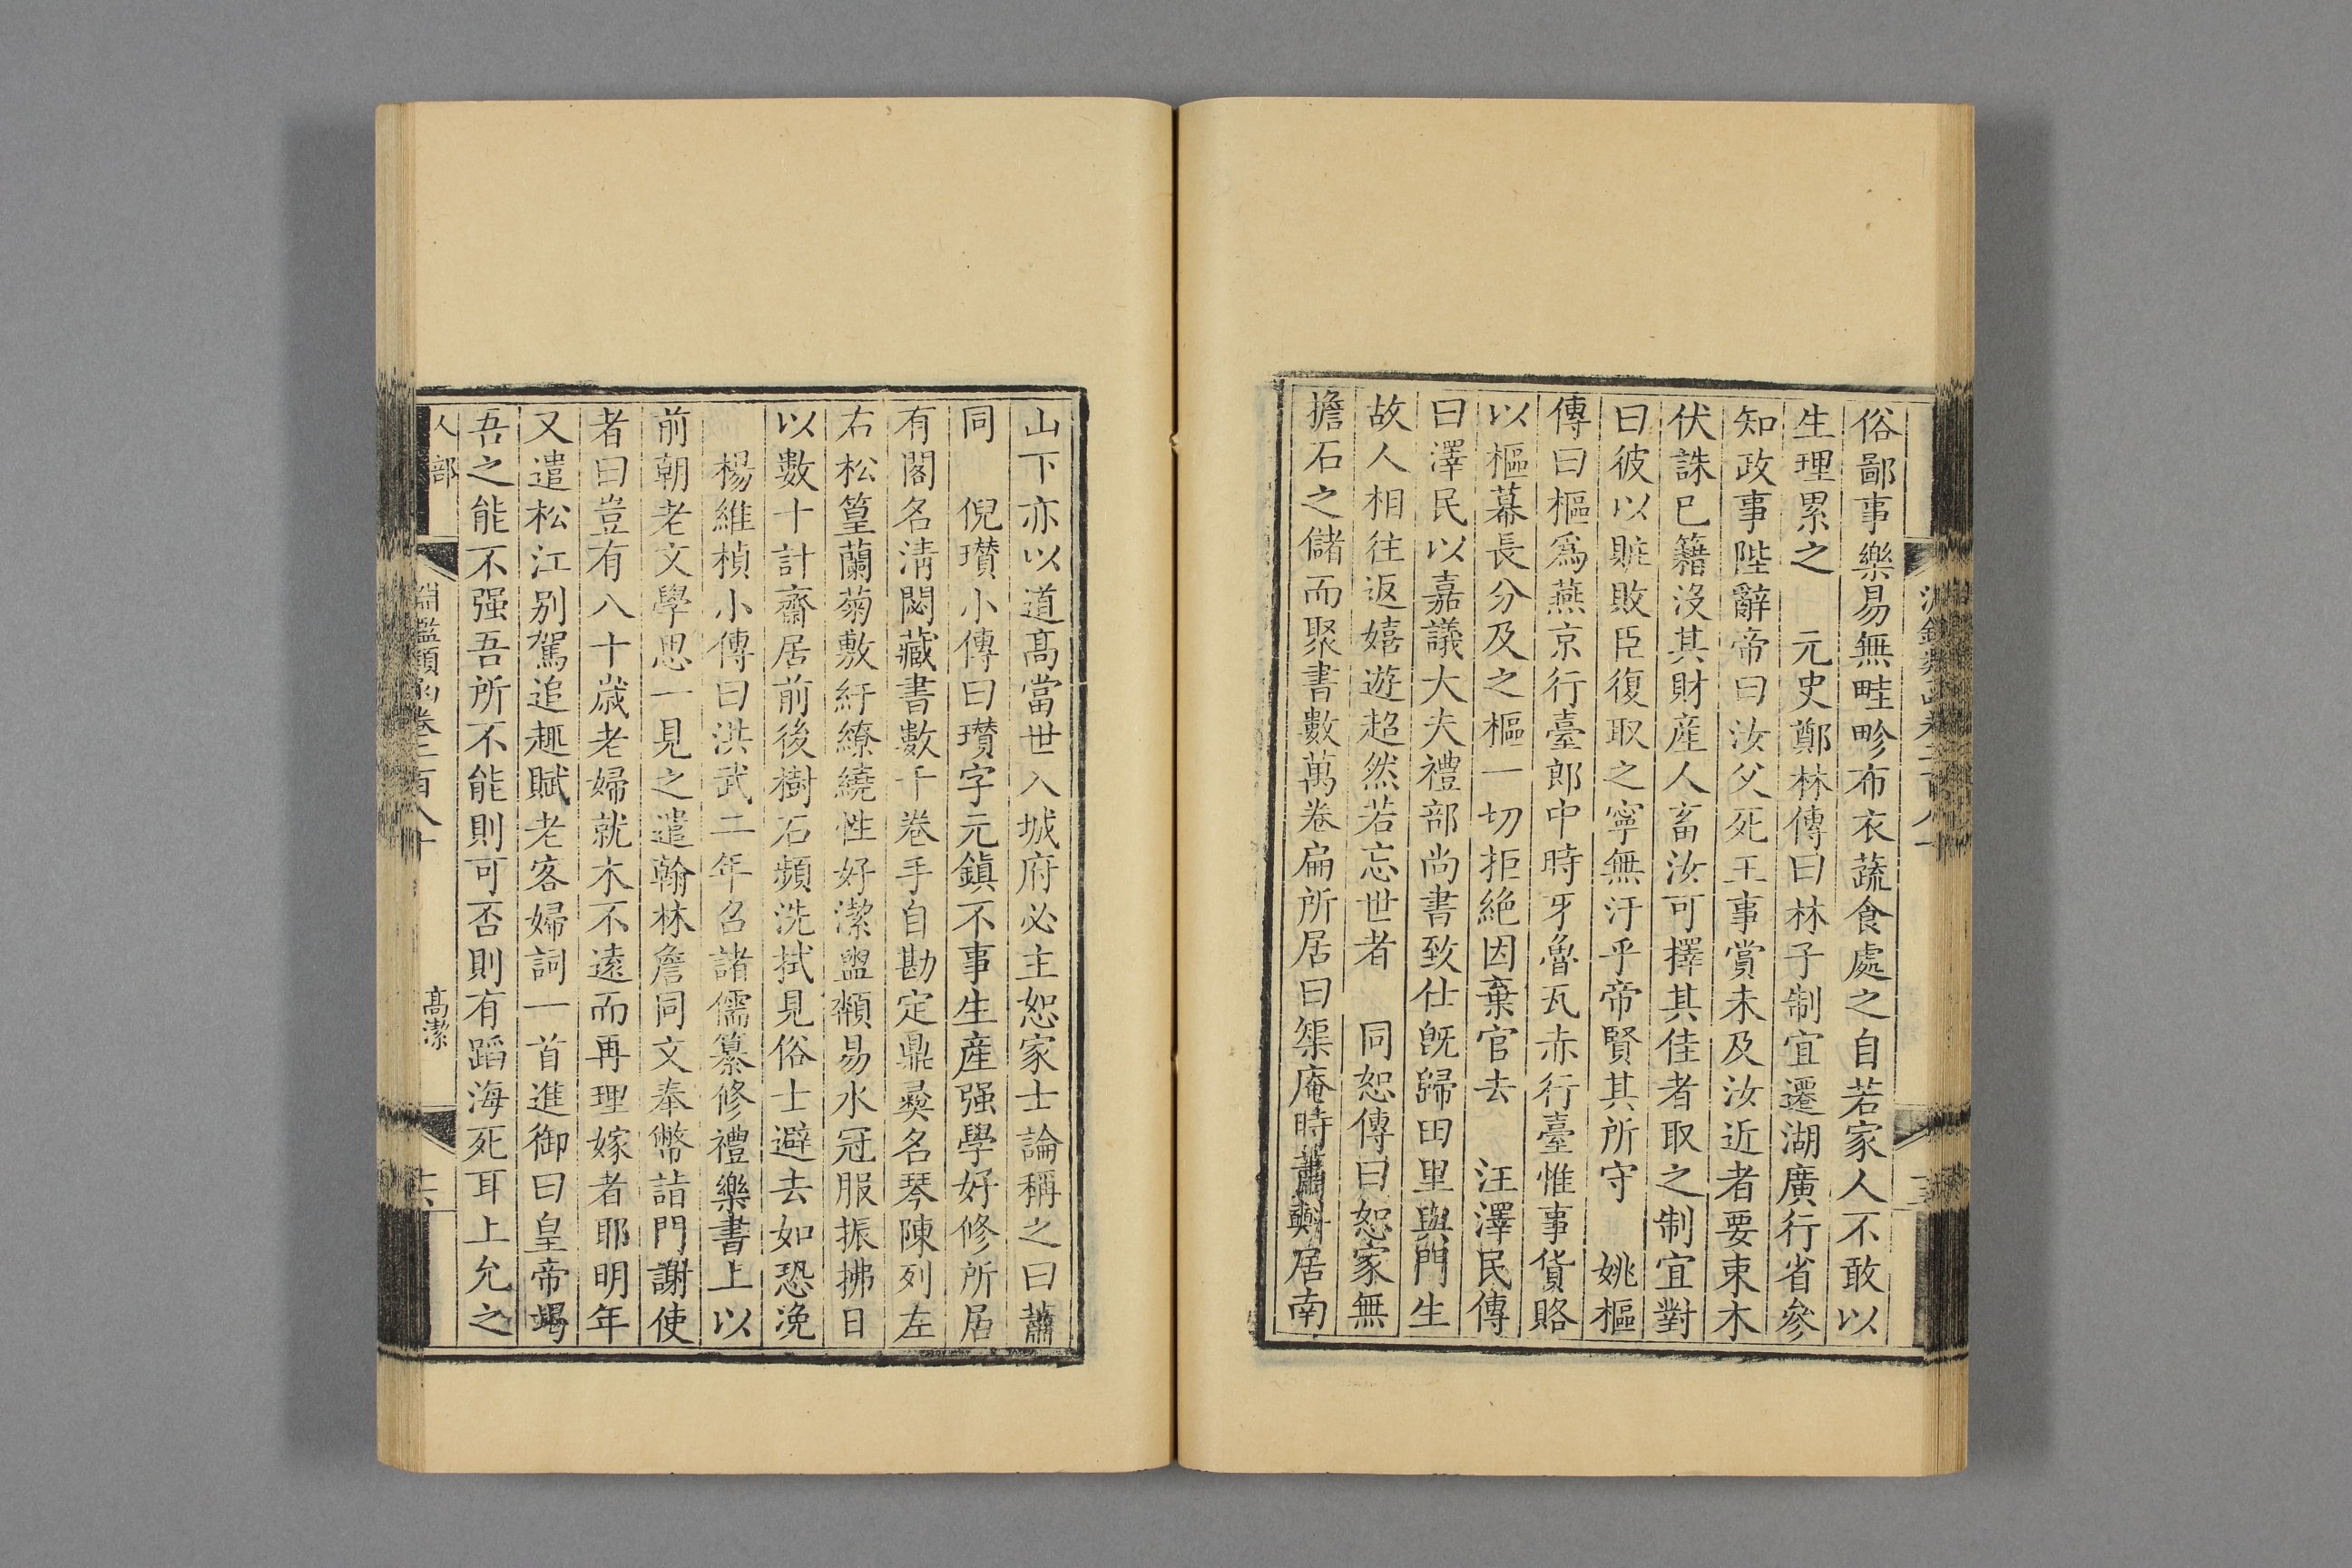 俗鄙事樂易無畦畛布衣蔬食處之自若家人不敢以
生理累之　元史鄭林傳曰林子制宜遷湖廣行省參
知政事陛辭帝曰汝父死王事賞未及汝近者要束木
伏誅已籍沒其財產人畜汝可擇其佳者取之制宜對
曰彼以賍敗臣復取之寧無汙乎帝賢其所守　姚樞
傳曰樞爲燕京行臺郎中時牙魯瓦赤行臺惟事貨賂
以樞幕長分及之樞一切拒絶因棄官去　汪澤民傳
曰澤民以嘉議大夫禮部尚書致仕旣歸田里與門生
故人相往返嬉遊超然若忘世者　同恕傳曰恕家無
擔石之儲而聚書數萬卷扁所居曰榘庵時蕭𣂏居南
山下亦以道髙當世入城府必主恕家士論稱之曰蕭
同　倪瓚小傳曰瓚字元鎮不事生產强學好修所居
有閣名淸閟藏書數千卷手自勘定鼎彞名琴陳列左
右松篁蘭菊敷紆繚繞性好潔盥頮易水冠服振拂日
以數十計齋居前後樹石頻洗拭見俗士避去如恐浼
楊維楨小傳曰洪武二年召諸儒纂修禮樂書上以
前朝老文學思一見之遣翰林詹同文奉幣詣門謝使
者曰豈有八十歲老婦就木不遠而再理嫁者耶明年
又遣松江别駕追趣賦老客婦詞一首進御曰皇帝竭
吾之能不强吾所不能則可否則有蹈海死耳上允之
人部
淵鑑類函卷二百八十
髙潔